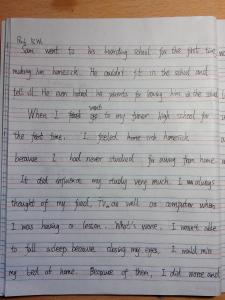 Sam went to his boarding school for the first time
making him homesick. He couldn't fit in the school and
fell ill. He even hated his parents for leaving him in the school
When I first went to my junior high school for
the first time. I feeled home-sick homesick
because I had never studied far away from home
It did influence my study very much. I was always
thought of my food, TV as well as computer when
I was having a lesson. What's worse, I wasn't able
to fall asleep because closing my eyes, I would miss
my bed at home. Because of them, I did worse and